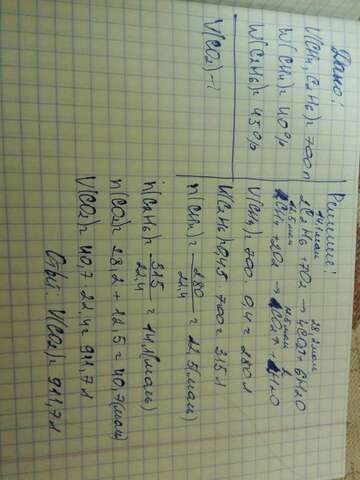 Дано:
V(CH₄, C₂H₆) = 700 л
W(CH₄) = 40%
W(C₂H₆) = 45%
V(CO₂) - ?
Решение:
14,1 моль 28,2 моль
2C₂H₆ + 7O₂ → 4CO₂↑ + 6H₂O
12,5 моль 12,5 моль
CH₄ + 2O₂ → CO₂↑ + 2H₂O
V(CH₄) = 700 · 0,4 = 280 л
V(C₂H₆) = 0,45 · 700 = 315 л
n(CH₄) = 280/22,4 = 12,5 (моль)
n(C₂H₆) = 315/22,4 = 14,1 (моль)
n(CO₂) = 28,2 + 12,5 = 40,7 (моль)
V(CO₂) = 40,7 · 22,4 = 911,7 л
Ответ: V(CO₂) = 911,7 л